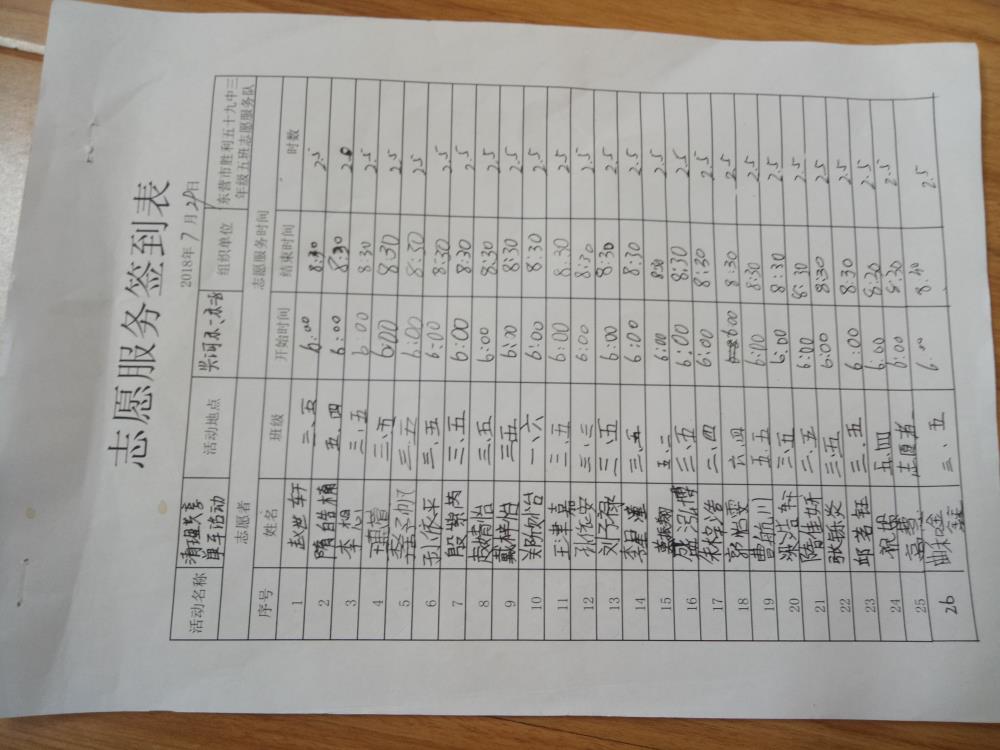 志愿服务签到表
2018年7月29日
活动名称 清理共享单车活动 活动地点 组织单位 东营市胜利五十九中三年级五班志愿服务队
志愿者 志愿服务时间
序号 姓名 班级 开始时间 结束时间 时数
1 赵世轩 三、五 6:00 8:30 2.5
2 隋自皓楠 五.四 6:00 8:30 2.5
3 李 三.五 6:00 8:30 2.5
4 三.五 6:00 8:30 2.5
5 李子帆 三.五 6:00 8:30 2.5
6 三.五 6:00 8:30 2.5
7 殷 三.五 6:00 8:30 2.5
8 赵婧怡 三.五 6:00 8:30 2.5
9 戴梓怡 三五 6:00 8:30 2.5
10 郑怡 一、六 6:00 8:30 2.5
11 王津嘉 三.五 6:00 8:30 2.5
12 张依安 三.三 6:00 8:30 2.5
13 刘子禄 三.五 6:00 8:30 2.5
14 李星潼 三.五 6:00 8:30 2.5
15 五.二 6:00 8:30 2.5
16 盛泓博 三.五 6:00 8:30 2.5
17 朱梓浩 三.四 6:00 8:30 2.5
18 郭怡雯 六.四 6:00 8:30 2.5
19 曹航川 五.五 6:00 8:30 2.5
20 梁浩轩 三.五 6:00 8:30 2.5
21 陆佳妍 三.五 6:00 8:30 2.5
22 张铄炎 三.五 6:00 8:30 2.5
23 邱茗钰 三.五 6:00 8:30 2.5
24 五.四 6:00 8:30 2.5
25 志愿者 6:00 8:30 2.5
26 三.五 6:00 8:30 2.5